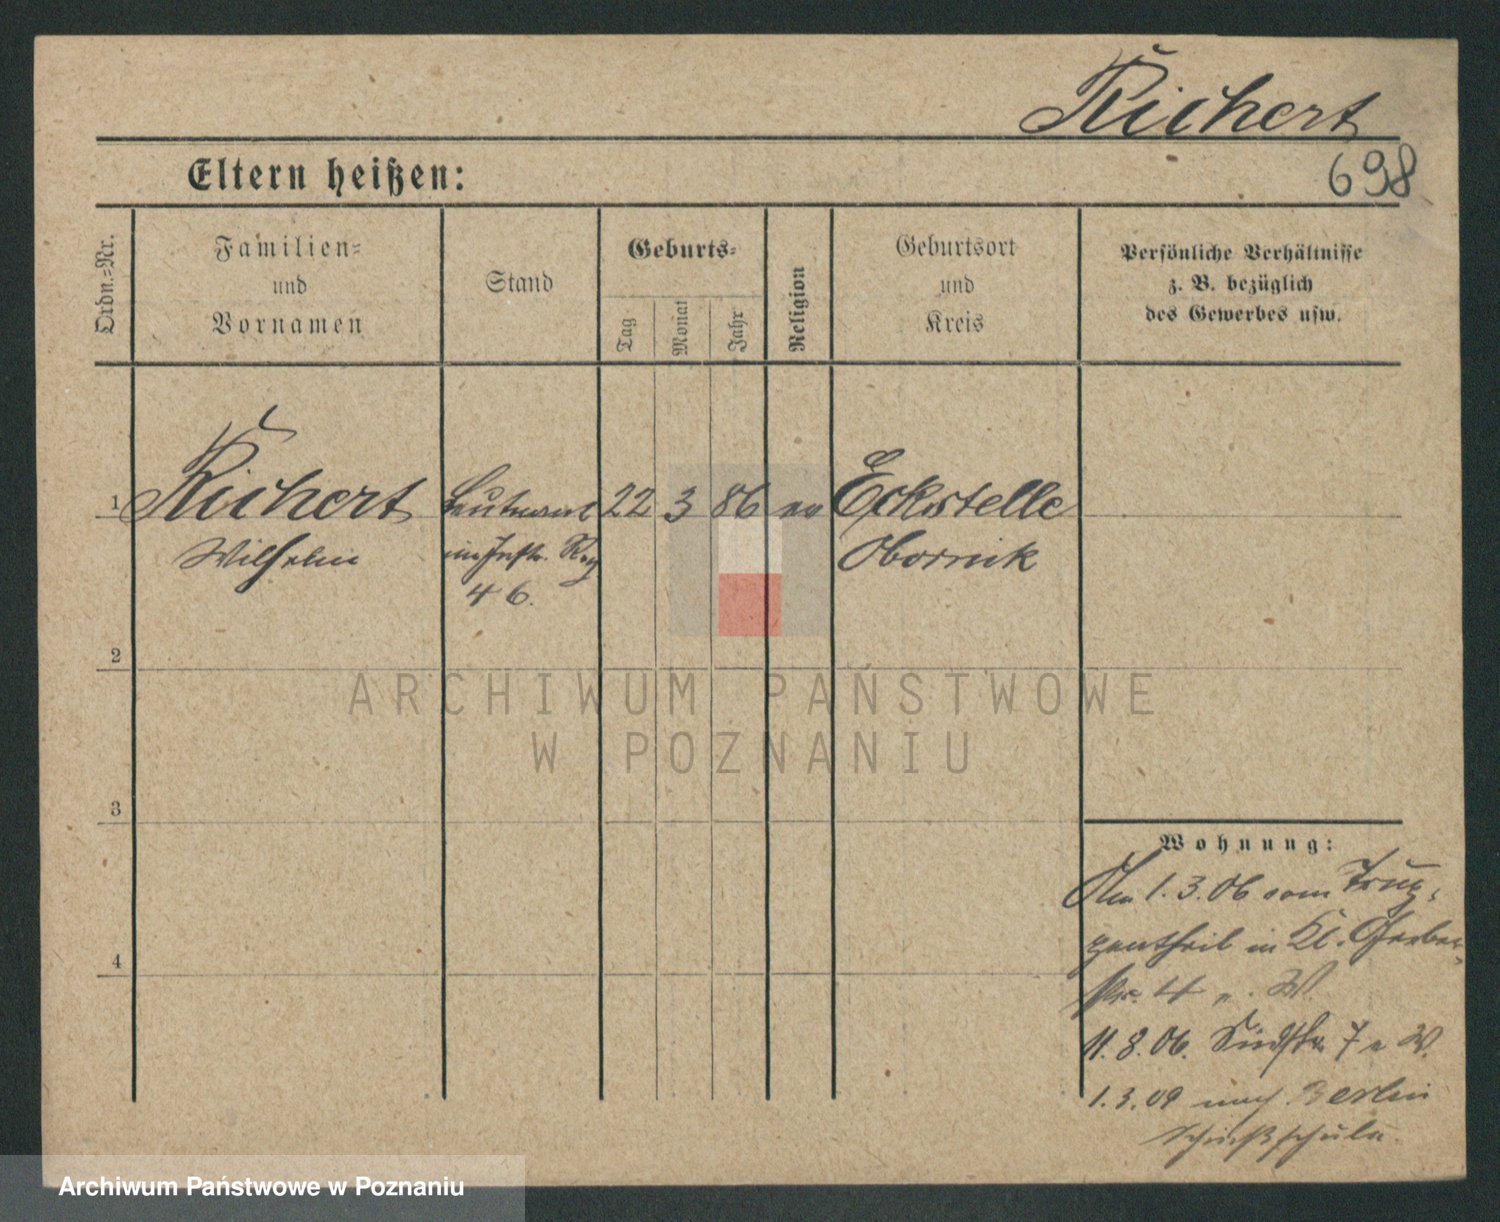 Richert
698
Eltern heißen:
Ordn.-Nr.
Familien-
und
Vornamen
Stand
Geburts-
Tag
Monat
Jahr
Religion
Geburtsort
und
Kreis
Persönliche Verhältnisse
z. B. bezüglich
des Gewerbes usw.
1 Richert Leutnant 22 3 86 ev Eckstelle
Wilhelm im Inftr. Reg Obornik
46.
2
ARCHIWUM PAŃSTWOWE
W POZNANIU
3
Wohnung:
Am 1.3.06 vom Trup-
pentheil in Kl. Gerber-
str. 4 W.
11.8.06. Südstr. 7 W.
1.3.09 nach Berlin
Schießschule.
4
Archiwum Państwowe w Poznaniu